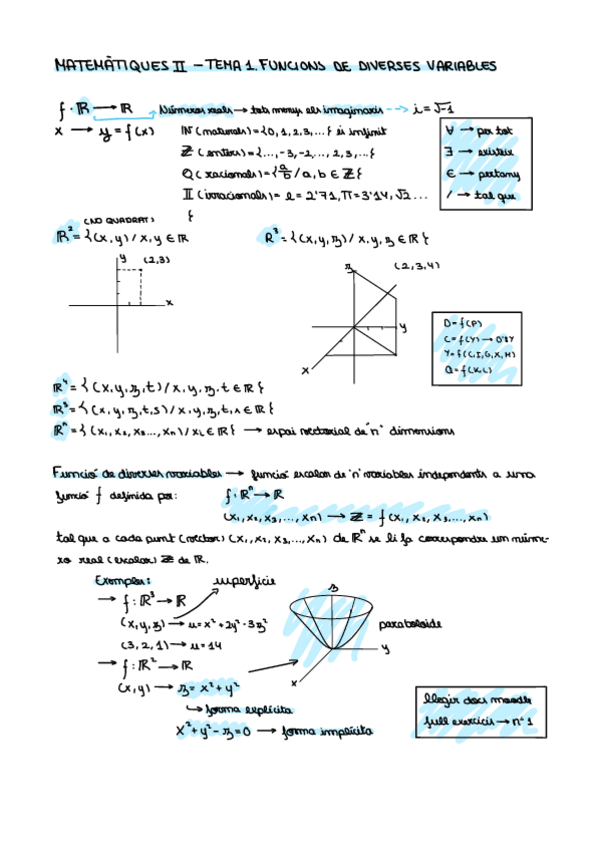 MATEMÀTIQUES II - TEMA 1. FUNCIONS DE DIVERSES VARIABLES
f: ℝ → ℝ Números reals → tots menys els imaginaris --> i = √-1
x → y = f(x) ℕ (naturals) = {0, 1, 2, 3, ...} és infinit
ℤ (enters) = {..., -3, -2, ..., 2, 3, ...}
ℚ (racionals) = {a/b / a, b ∈ ℤ}
𝕀 (irracionals) = e = 2'71, π = 3'14, √2 ...
}
∀ → per tot
∃ → existeix
∈ → pertany
/ → tal que
(NO QUADRAT)
ℝ² = {(x, y) / x, y ∈ ℝ
y (2,3)
x
ℝ³ = {(x, y, z) / x, y, z ∈ ℝ}
z (2,3,4)
y
x
D = f(P)
C = f(Y) → 0'8Y
Y = f(C, I, G, X, M)
Q = f(K, L)
ℝ⁴ = {(x, y, z, t) / x, y, z, t ∈ ℝ}
ℝ⁵ = {(x, y, z, t, s) / x, y, z, t, s ∈ ℝ}
ℝⁿ = {(x₁, x₂, x₃..., xₙ) / xᵢ ∈ ℝ} → espai vectorial de "n" dimensions
Funció de diverses variables → funció escalar de 'n' variables independents a una
funció f definida per: f: ℝⁿ → ℝ
(x₁, x₂, x₃, ..., xₙ) → z = f(x₁, x₂, x₃, ..., xₙ)
tal que a cada punt (vector) (x₁, x₂, x₃, ..., xₙ) de ℝⁿ se li fa correspondre un núme-
ro real (escalar) z de ℝ.
Exemples: superfície
→ f: ℝ³ → ℝ
(x, y, z) → u = x² + 2y² - 3z²
(3, 2, 1) → u = 14
→ f: ℝ² → ℝ
(x, y) → z = x² + y²
↳ forma explícita
x² + y² - z = 0 → forma implícita
z
paraboloide
y
x
llegir docs moodle
full exercicis → nº 1